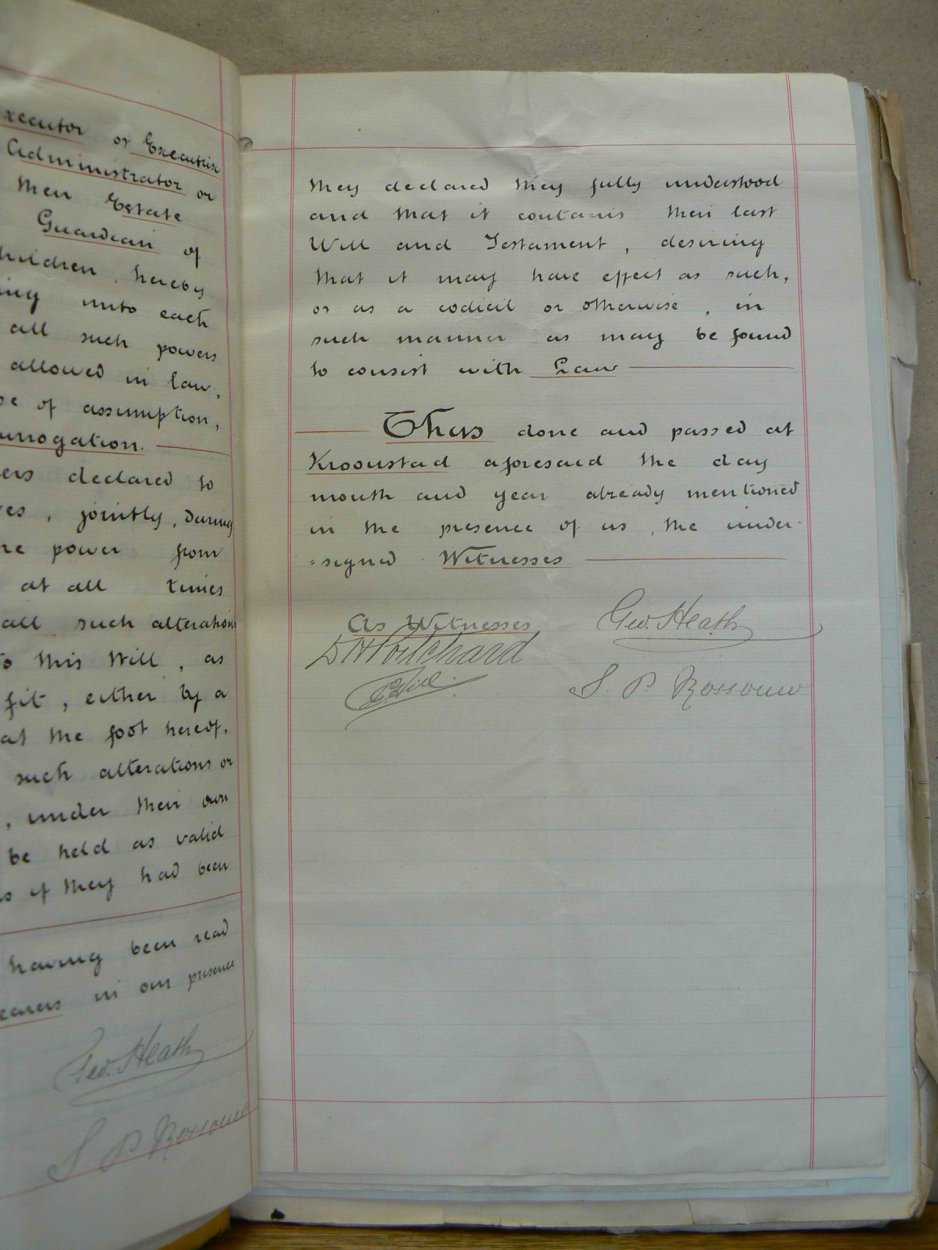 Executor or Executrix
Administrator or
their Estate
Guardian of
children, hereby
unto each
all such powers
allowed in law,
of assumption,
surrogation.
declared to
jointly, during
power from
at all times
all such alterations
to this Will, as
fit, either by a
at the foot hereof,
such alterations or
, under their own
be held as valid
as if they had been
having been read
in our presence
Geo. Heath
S P Rossouw
they declared they fully understood
and that it contains their last
Will and Testament, desiring
that it may have effect as such,
or as a codicil or otherwise, in
such manner as may be found
to consist with Law
Thus done and passed at
Kroonstad aforesaid the day
month and year already mentioned
in the presence of us, the under-
=signed Witnesses
As Witnesses
Geo. Heath
D H Pritchard
S. P Rossouw